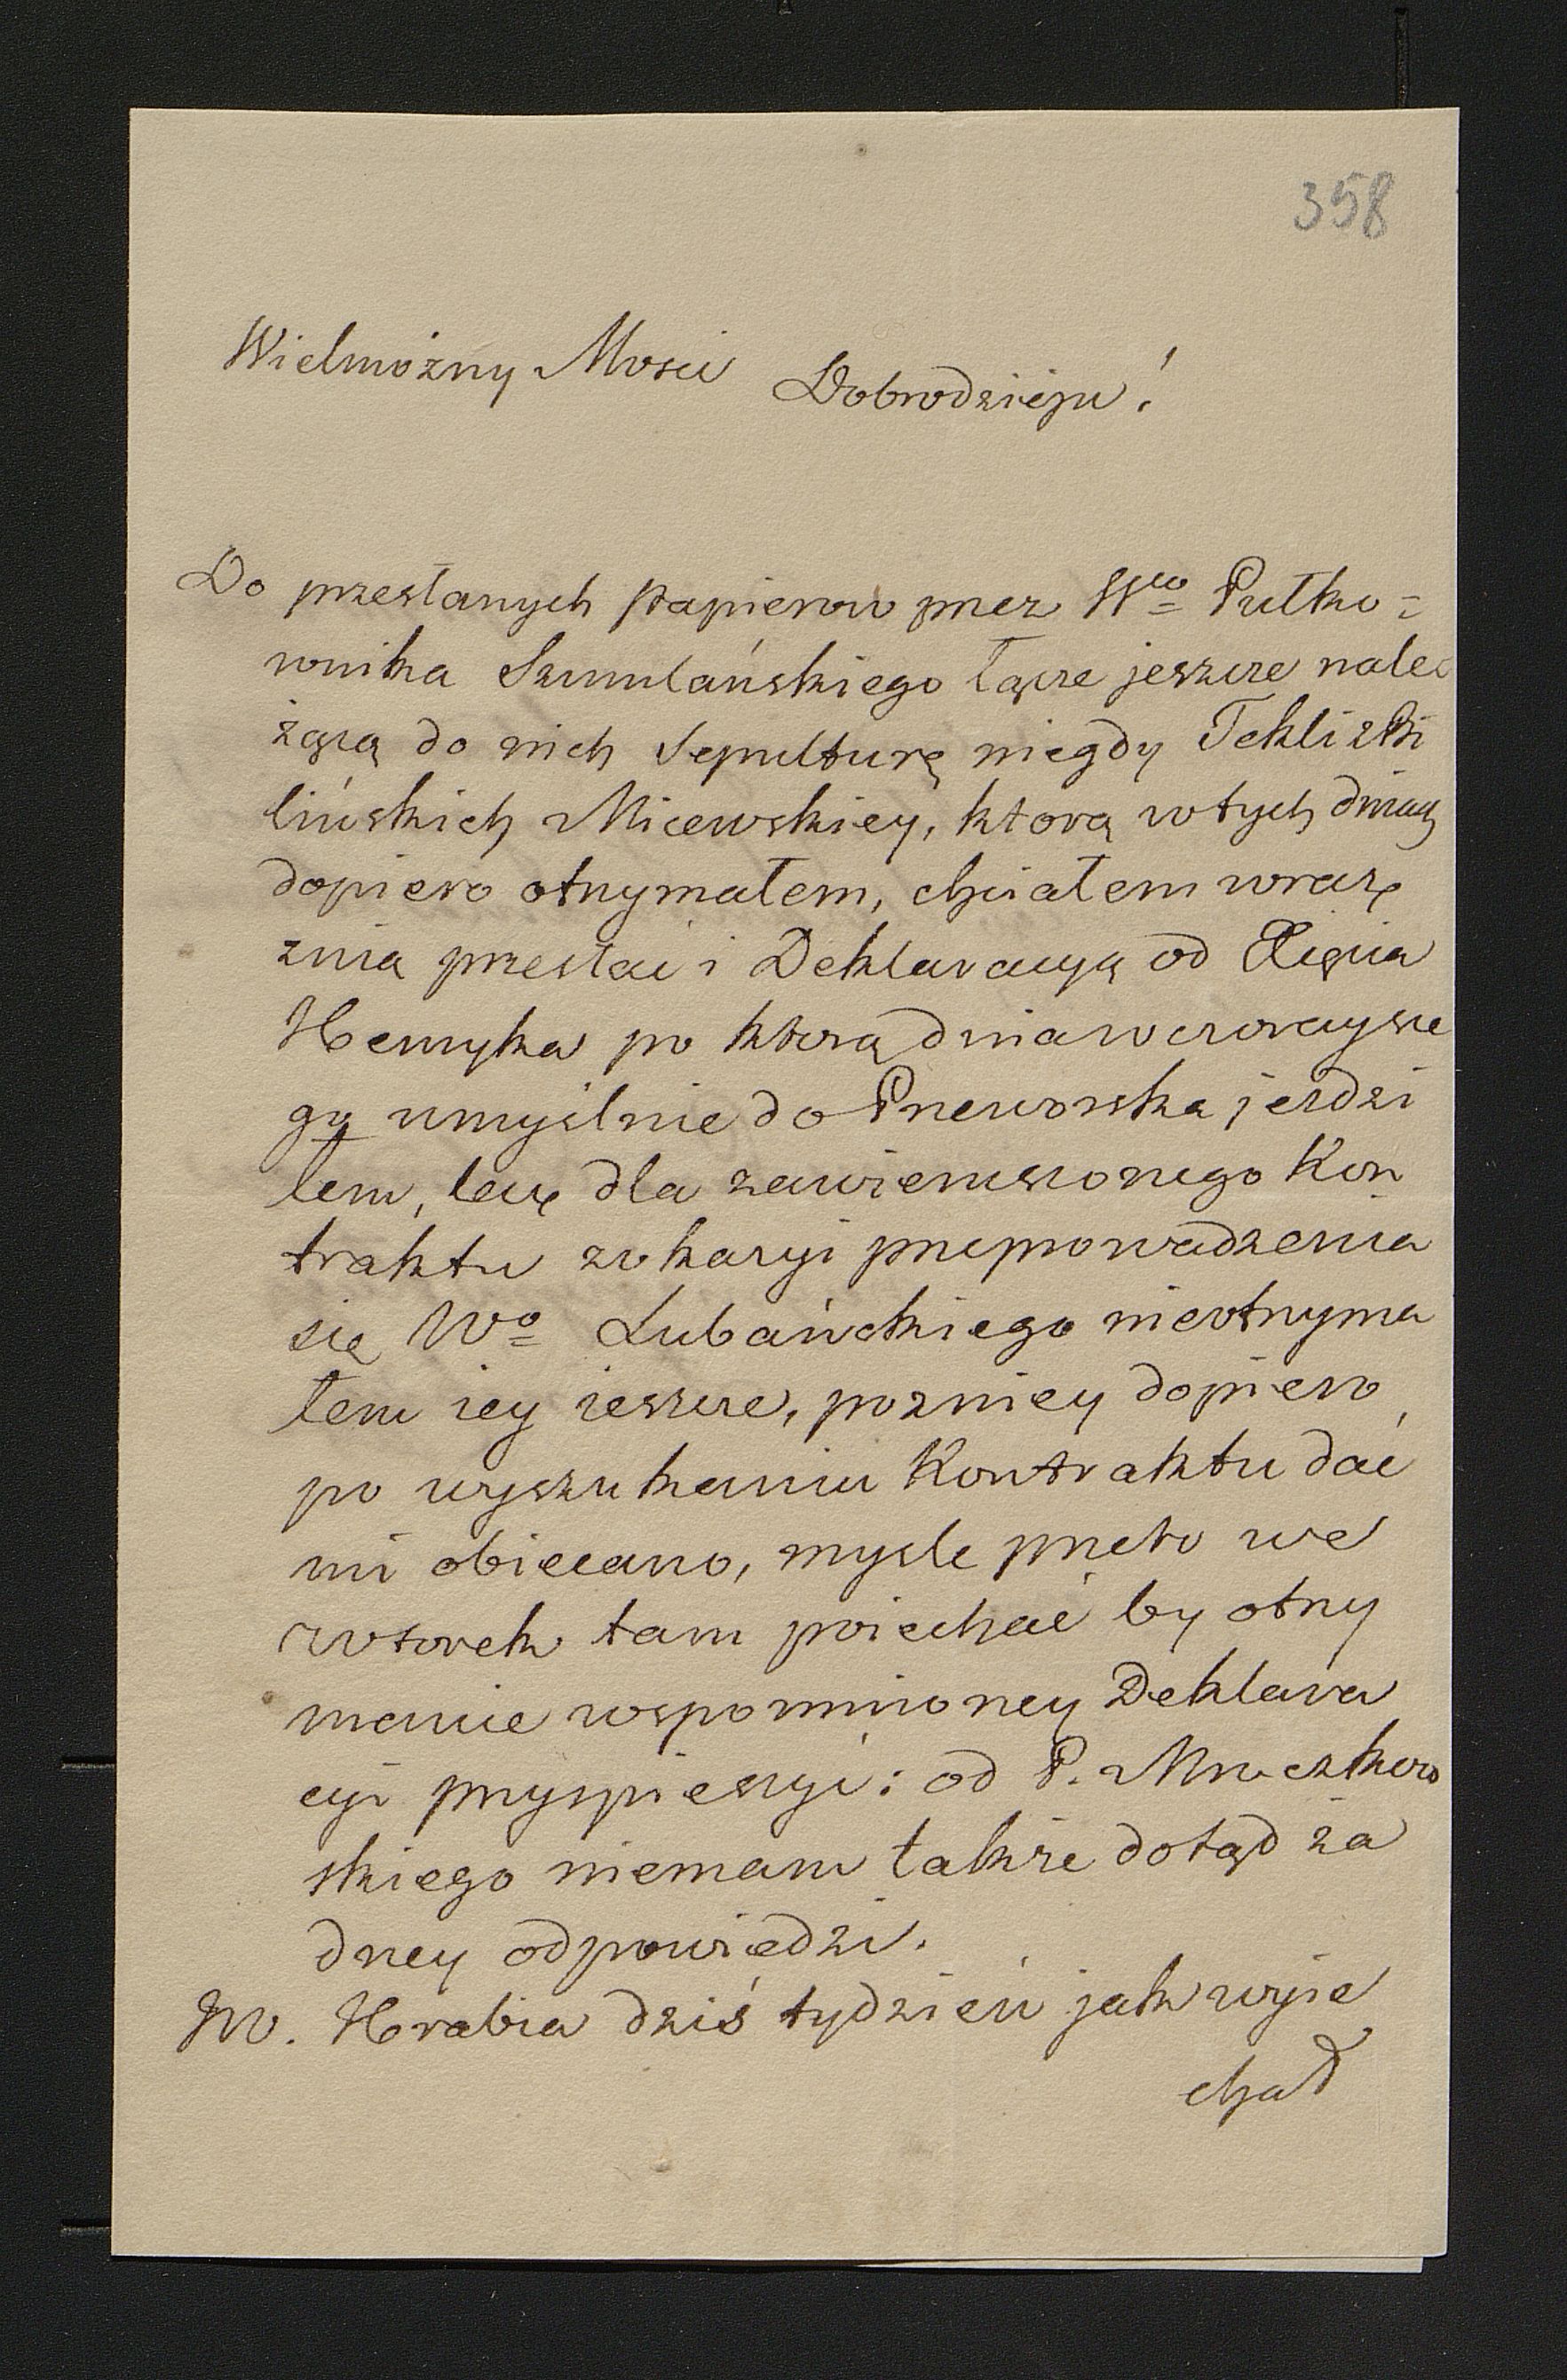 358
Wielmożny Mości Dobrodzieju!
Do przesłanych papierow przez Wgo Pułko=
wnika Szumlańskiego łącze jeszcze nale
żącą do nich Sepulturę niegdy Tekli
lińskich Micewskiey, ktorą w tych dniach
dopiero otrzymałem, chciałem wraz
z nią przesłać i Deklaracyą od Xięcia
Henryka po ktorą dnia wczoraysze
go umyślnie do Przeworska jeździ
łem, lecz dla zawieruszonego Kon
traktu z okazyi przeprowadzenia
się Wo Lubańskiego nieotrzyma
łem iey ieszcze, pozniey dopiero
po wyszukaniu Kontraktu dać
mi obiecano, mysle przeto we
wtorek tam poiechać by otrzy
manie wspomnioney Deklara
cyi przyspieszyć: od P. Mroczkow
skiego niemam także dotąd ża
dney odpowiedzi.
JW. Hrabia dziś tydzień jak wyie
chał